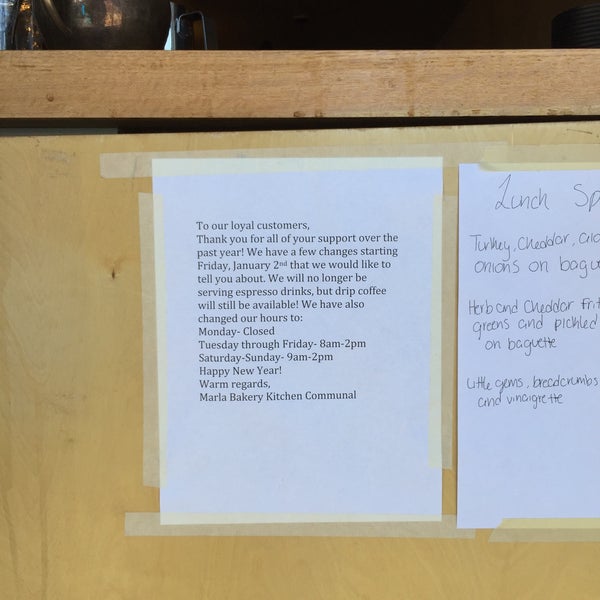 To our loyal customers,
Thank you for all of your support over the
past year! We have a few changes starting
Friday, January 2nd that we would like to
tell you about. We will no longer be
serving espresso drinks, but drip coffee
will still be available! We have also
changed our hours to:
Monday- Closed
Tuesday through Friday- 8am-2pm
Saturday-Sunday- 9am-2pm
Happy New Year!
Warm regards,
Marla Bakery Kitchen Communal
Lunch Sp
Turkey, Cheddar,
onions on bagu
Herb and Cheddar Frit
greens and pickled
on baguette
Little gems, breadcrumbs
and vinaigrette